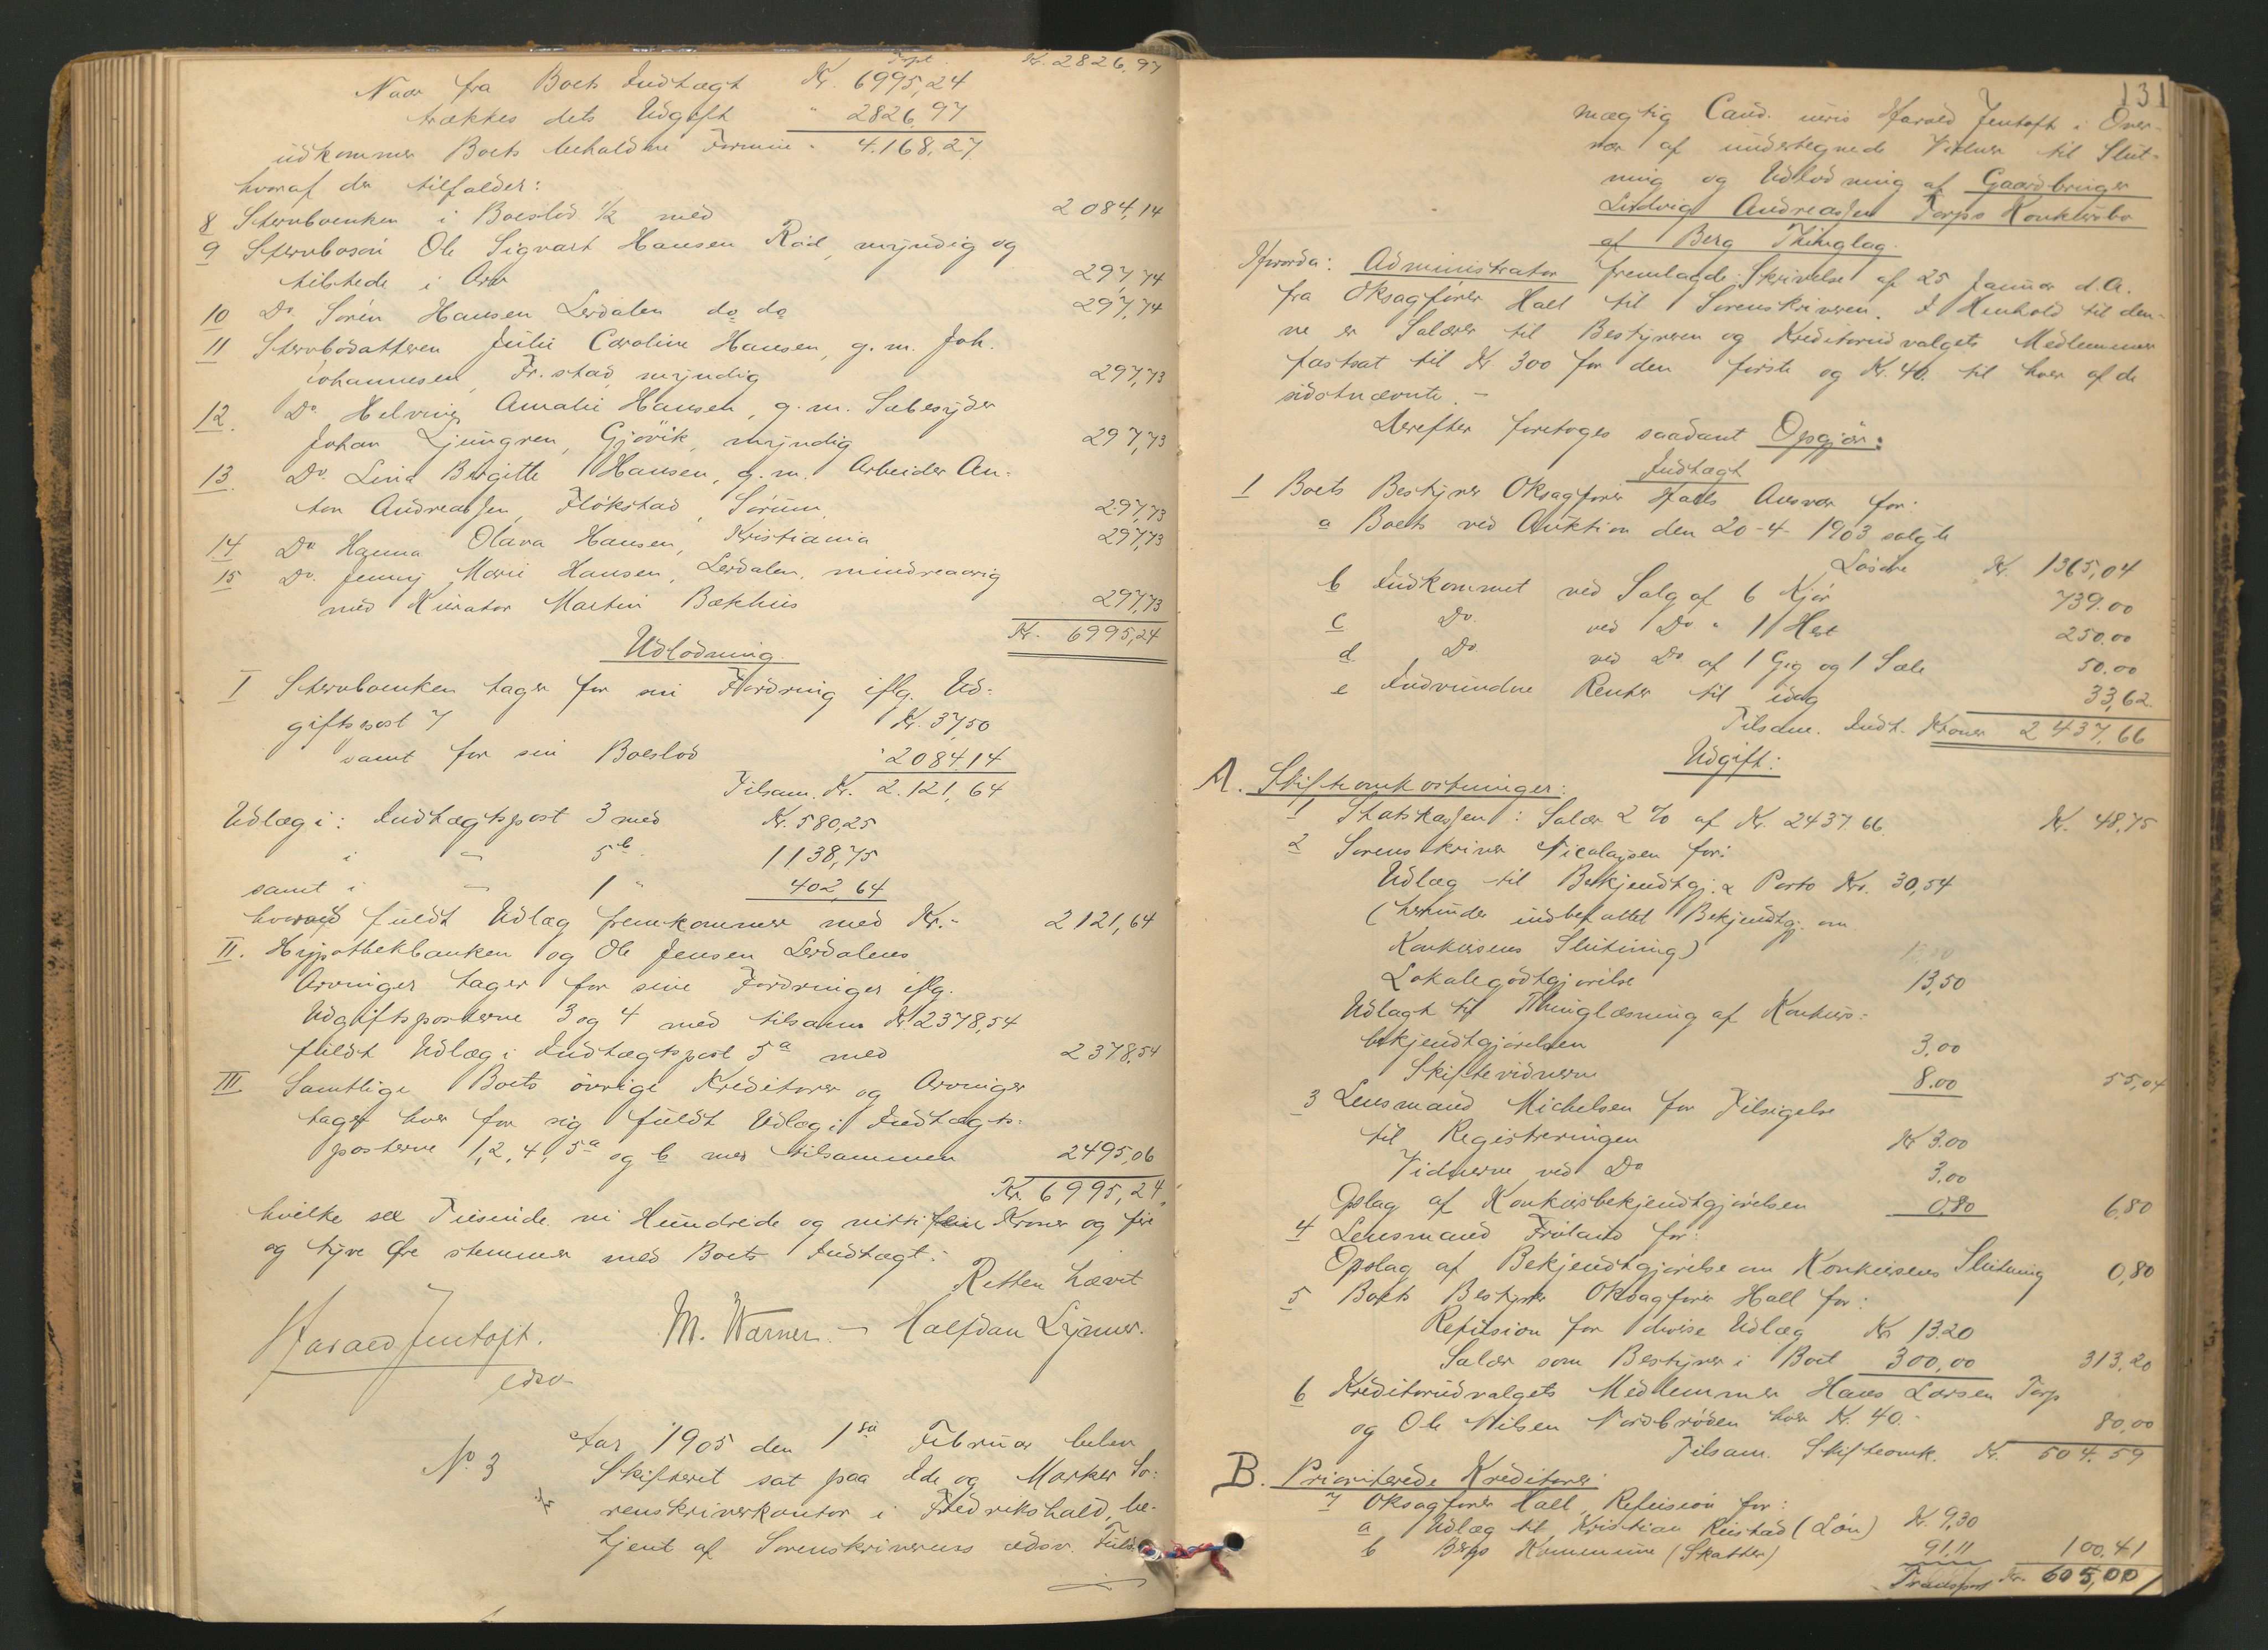 Tspt. Kr. 2826,97
Naar fra Boets Indtægt Kr. 6995,24
trækkes dets Udgift " 2826,97
udkommer Boets beholdne Formue " 4.168,27
hvoraf der tilfalder:
8 Stervboenken i Boeslod 1/2 med 2084,14
9 Stervbosön Ole Sigvart Hansen Röd, myndig og
tilstede i Arv 297,74
10 Do. Sörén Hansen Lerdalen do do 297,74
11 Stervbodatteren Julie Caroline Hansen, g. m. Joh.
Johannesen, Fr.stad, myndig 297,73
12. Do. Helvine Amalie Hansen, g. m. Sæbesyder
Johan Ljungren, Gjövik, myndig 297,73
13. Do. Lina Birgitte Hansen, g. m. Arbeider An-
ton Andreassen, Flökstad, Sörum, 297,73
14 Do Hanna Olava Hansen, Kristiania 297,73
15 Do. Jenny Marie Hansen, Lerdalen, mindreaarig
med Kurator Martin Bækhus 297,73
Kr. 6995,24
Udlodning
I Stervboenken tager for sin Fordring iflg. Ud-
giftspost 7 Kr. 37,50
samt for sin Boeslod " 2084,14
Tilsam. Kr. 2.121,64
Udlæg i: Indtægtspost 3 med Kr. 580,25
i " 5b 1138,75
samt i " 1 " 402,64
hvorved fuldt Udlæg fremkommer med Kr. 2121,64
II. Hypothekbanken og Ole Jensen Lerdalens
Arvinger tager for sine Fordringer iflg.
Udgiftsposterne 3 og 4 med tilsam Kr. 2378,54
fuldt Udlæg i Indtægtspost 5a med 2378,54
III Samtlige Boets övrige Kreditorer og Arvinger
tager hver for sig fuldt Udlæg i Indtægts-
posterne 1, 2, 4, 5a og b med tilsammen 2495,06
Kr. 6995,24
hvilke sex Tusinde ni Hundrede og nitti fem Kroner og fire
og tyve Öre stemmer med Boets Indtægt.
Retten hævet
Harald Jentoft. M. Warner. — Halfdan Lynner.
edsv
No. 3 Aar 1905 den 1ste Februar blev
Skifteret sat paa Ide og Marker So-
renskriverkontor i Fredrikshald, be-
tjent af Sorenskriverens edsv. Fuld-
131
mægtig Cand. juris Harald Jentoft i Over-
vær af undertegnede Vidner til Slut-
ning og Udlodning af Gaardbruger
Ludvig Andreassen Torps Konkursbo
af Berg Thinglag.
Hvorda: Administrator fremlagde Skrivelse af 25 Januar d.A.
fra Oksagförer Hall til Sorenskriveren. I Henhold til den-
ne er Salærer til Bestyreren og Kreditorudvalgets Medlemmer
fastsat til Kr 300 for den förste og Kr. 40. til hver af de
sidstnævnte. —
Derefter foretoges saadant Opgjör:
Indtægt
1 Boets Bestyrer Oksagförer Halls Ansvar for:
a Boets ved Auktion den 20-4-1903 solgte
Lösöre Kr. 1365,04
b Indkommet ved Salg af 6 Kjör 739.00
c Do. ved Do " 1 Hest 250.00
d Do ved Do af 1 Gig og 1 Sæle 50.00
e Indvundne Renter til idag 33,62
Tilsam. Indt. Kroner 2437,66
Udgift:
A. Skifteomkostninger:
1 Statskassen: Salær 2 % af Kr. 2437.66. Kr. 48,75
2 Sorenskriver Nicolaysen for:
Udlæg til Bekjendtgj. & Porto Kr. 30,54
(herunder indbefattet Bekjendtgj. om
Konkursens Slutning)
Lokalegodtgjörelse 13,50
Udlagt til Thinglæsning af Konkurs-
bekjendtgjörelsen 3,00
Skiftevidnerne 8.00 55,04
3 Lensmand Michelsen for Tilsigelse
til Registreringen Kr 3.00
Vidnerne ved Do 3.00
Opslag af Konkursbekjendtgjörelsen 0,80 6,80
4 Lensmand Fröland for:
Opslag af Bekjendtgjörelse om Konkursens Slutning 0,80
5 Boets Bestyrer Oksagförer Hall for:
Refusion for diverse Udlæg Kr 13.20
Salær som Bestyrer i Boet 300,00 313,20
6 Kreditorudvalgets Medlemmer Hans Larsen Torp
og Ole Nilsen Nordbröden hver Kr. 40. - 80,00
Tilsam. Skifteomk. Kr. 504.59
B. Prioriterede Kreditorer:
7 Oksagförer Hall, Refusion for:
a Udlæg til Kristian Rustad (Lön) Kr. 9,30
b Bergs Kommune (Skatter) 91.11 100.41
Transport Kr. 605,00